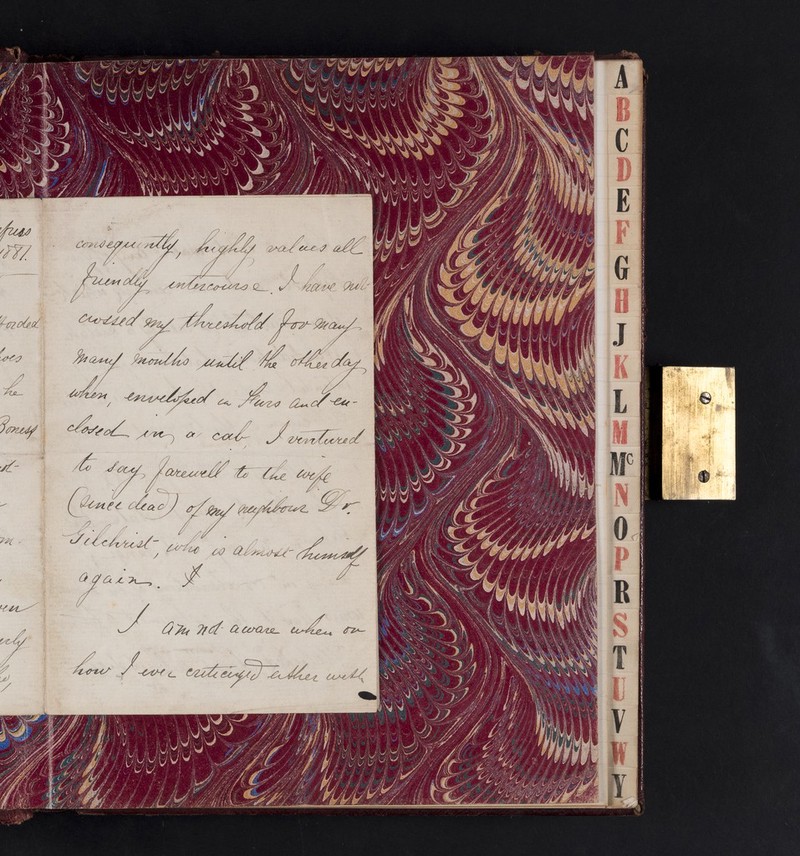 1881.
he
consequently, highly values all
friendly intercourse. I have not
crossed my threshold for many
many months until the other day
when, enveloped in furs and en-
closed in a cab, I ventured
to say farewell to the wife
(since dead) of my neighbour Dr.
Gilchrist, who is almost himself
again.
I am not aware when or
how I ever criticized either with
A
B
C
D
E
F
G
H
J
K
L
M
Mc
N
O
P
R
S
T
U
V
W
Y